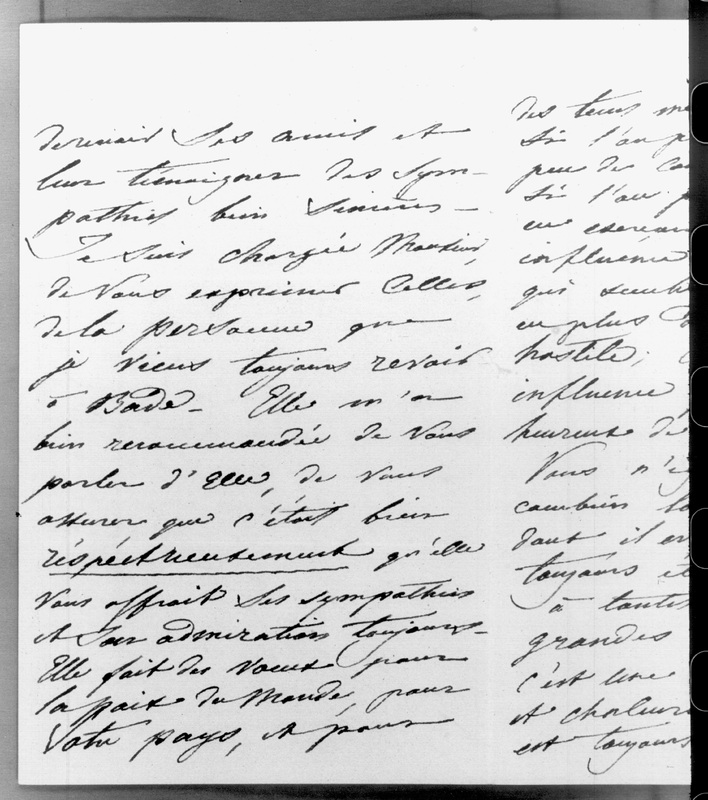 devenir ses amis et
leur témoigner des sym-
pathies bien sincères -
Je suis chargée Monsieur,
de Vous exprimer Celles,
de la personne que
je viens toujours revoir
à Bade - Elle m'a
bien recommandée de Vous
parler d'Elle, de Vous
assurer que c'était bien
réspéctueusement qu'elle
Vous offrait Ses sympathies
et Son admiration toujours -
Elle fait des Voeux pour
la paix du Monde, pour
Votre pays, et pour
des tems
Si l'on p
peu de
Si l'on p
en
influence
qui
en plus
hostile,
influence
heureuse de
Vous n'
combien
dont il
toujours
à toutes
grandes
c'est une
et
est toujours